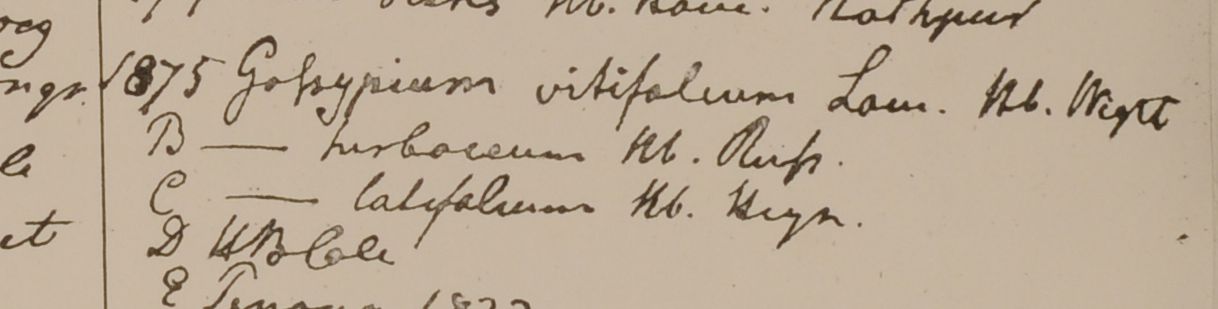 Hb. Ham. Nathpur
ocg
ngr. 1875 Gossypium vitifolium Lam. Hb. Wight
B — herbaceum Hb. Russ.
le
C — latifolium Hb. Heyn.
et D HBCalc
E 1822